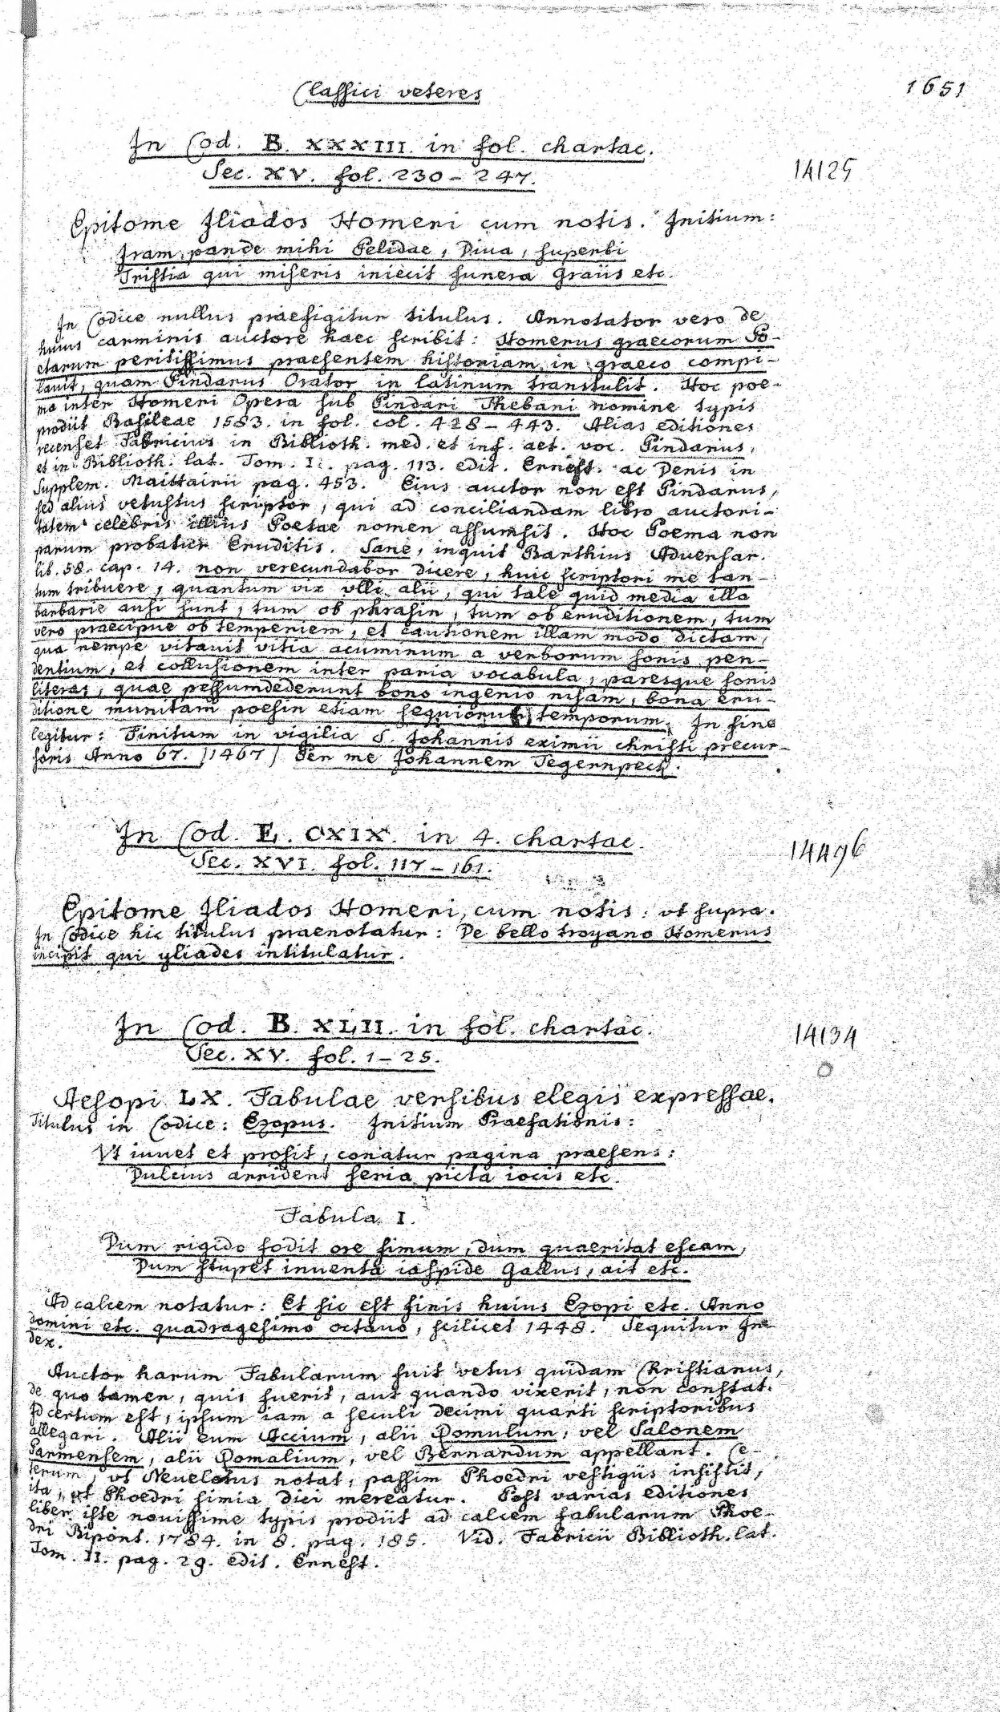 Classici veteres
1651
In Cod. B. XXXIII. in fol. chartac.
Sec. XV. fol. 230 – 247.
14125
Epitome Iliados Homeri cum notis. Initium:
Iram pande mihi Pelidae, Diva, superbi
Tristia qui miseris iniecit funera Graiis etc.
In Codice nullus praefigitur titulus. Annotator vero de
huius carminis auctore haec scribit: Homerus graecorum Po-
etarum peritissimus praesentem historiam in graeco compi-
lauit, quam Pindarus Orator in latinum transtulit. Hoc poe-
ma inter Homeri Opera sub Pindari Thebani nomine typis
prodiit Basileae 1583. in fol. col. 428 – 443. Alias editiones
recenset Fabricius in Biblioth. med. et inf. aet. voc. Pindarus,
et in Biblioth. lat. Tom. I. pag. 113. edit. Ernest. ac Denis in
Supplem. Maittairii pag. 453. Eius auctor non est Pindarus,
sed alius vetustus scriptor, qui ad conciliandam libro auctori-
tatem celebris illius Poetae nomen assumsit. Hoc Poema non
parum probatur Eruditis. Sane, inquit Barthius Adversar.
lib. 58. cap. 14. non verecundabor dicere, huic scriptori me tan-
tum tribuere, quantum vix ulli alii, qui tale quid media illa
barbarie ausi sunt, tum ob phrasin, tum ob eruditionem, tum
vero praecipue ob temperiem, et cautionem illam modo dictam,
qua nempe vitavit vitia acuminum a verborum sonis pen-
dentium, et collusionem inter paria vocabula, paresque sonis
literas, quae pessumdederunt bono ingenio nisam, bona eru-
ditione munitam poesin etiam sequiorum temporum. In fine
legitur: Finitum in vigilia S. Johannis eximii christi precur-
soris Anno 67. [1467] Per me Johannem Tegernpeck.
In Cod. E. CXIX. in 4. chartac.
Sec. XVI. fol. 117 – 161.
14496
Epitome Iliados Homeri, cum notis: ut supra.
In Codice hic titulus praenotatur: De bello troyano Homerus
incipit qui yliades intitulatur.
In Cod. B. XLII. in fol. chartac.
Sec. XV. fol. 1 – 25.
14134
Aesopi LX. Fabulae versibus elegis expressae.
Titulus in Codice: Ezopus. Initium Praefationis:
Vt iuuet et prosit, conatur pagina praesens:
Dulcius arrident seria picta iocis etc.
Fabula I.
Dum rigido fodit ore fimum, dum quaeritat escam,
Dum stupet inventa iaspide Gallus, ait etc.
Ad calcem notatur: Et sic est finis huius Ezopi etc. Anno
domini etc. quadragesimo octauo, scilicet 1448. Sequitur In-
dex.
Auctor harum Fabularum fuit vetus quidam Christianus,
de quo tamen, quis fuerit, aut quando vixerit, non constat.
Id certum est, ipsum iam a seculi decimi quarti scriptoribus
allegari. Alii eum Accium, alii Romulum, vel Salonem
Parmensem, alii Romalium, vel Bernardum appellant. Ce-
terum, ut Neueletus notat, passim Phoedri vestigiis insistit,
ita, ut Phoedri simia dici mereatur. Post varias editiones
liber iste nouissime typis prodiit ad calcem fabularum Phoe-
dri Bipont. 1784. in 8. pag. 185. Vid. Fabricii Biblioth. lat.
Tom. II. pag. 29. edit. Ernest.